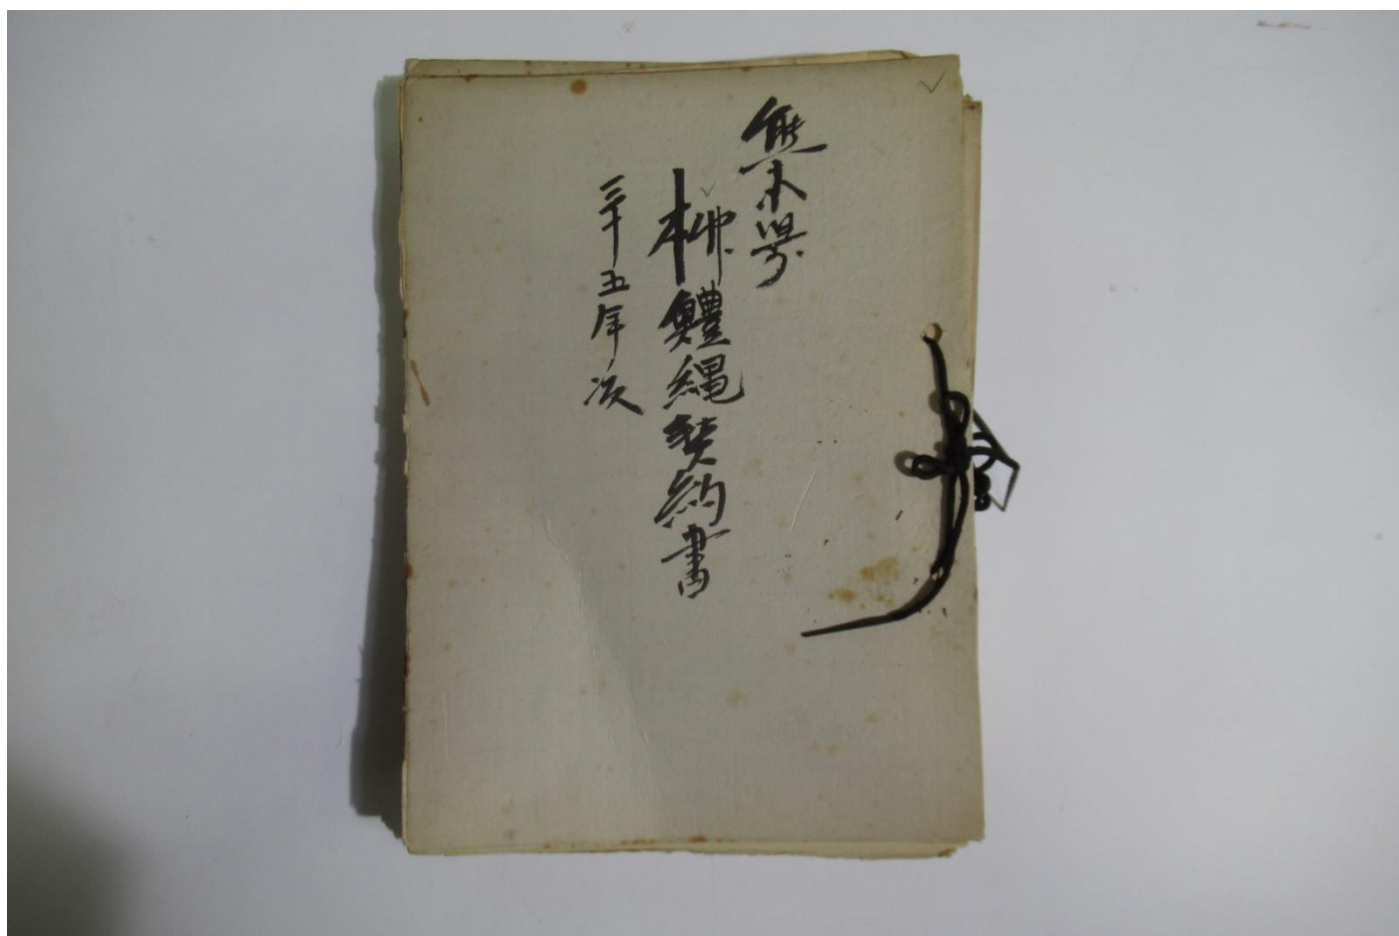 熊本県
柳鱧縄契約書
三十五年次